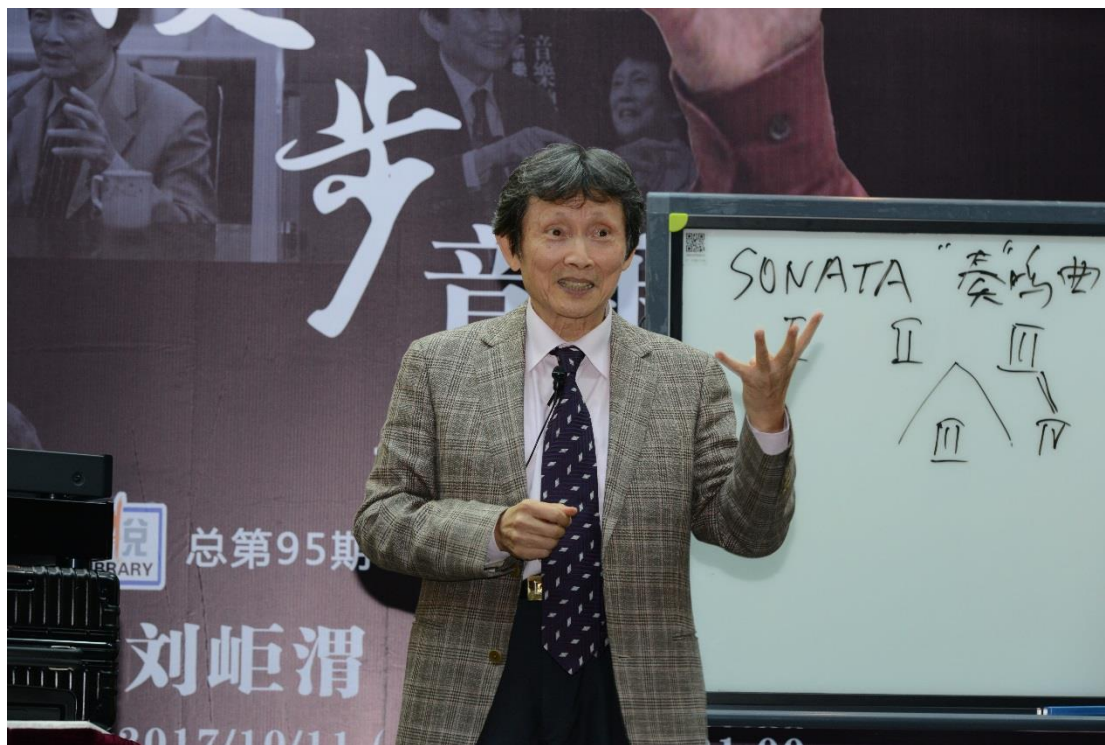 步
音
音樂
SONATA “奏”鸣曲
II III
III IV
BRARY
总第95期
刘岠渭
2017/10/11